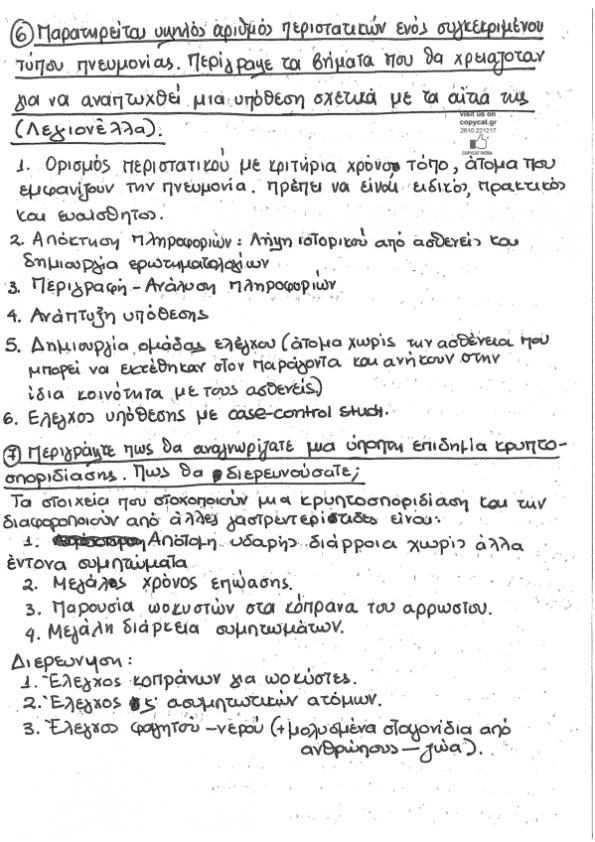 ⑥ Παρατηρείται υψηλός αριθμός περιστατικών ενός συγκεκριμένου
τύπου πνευμονίας. Περίγραψε τα βήματα που θα χρειαζόταν
για να αναπτυχθεί μια υπόθεση σχετικά με τα αίτιά της
(Λεγιονέλλα).
visit us on
copycat.gr
2610 221217
COPYCAT PATRA
1. Ορισμός περιστατικού με κριτήρια χρόνο, τόπο, άτομα που
εμφανίζουν την πνευμονία. Πρέπει να είναι ειδικός, πρακτικός
και ευαίσθητος.
2. Απόκτηση πληροφοριών: Λήψη ιστορικού από ασθενείς και
δημιουργία ερωτηματολογίων
3. Περιγραφή - Ανάλυση πληροφοριών
4. Ανάπτυξη υπόθεσης
5. Δημιουργία ομάδας ελέγχου (άτομα χωρίς την ασθένεια που
μπορεί να εκτέθηκαν στον παράγοντα και ανήκουν στην
ίδια κοινότητα με τους ασθενείς.)
6. Έλεγχος υπόθεσης με case-control studi.
⑦ Περιγράψτε πως θα αναγνωρίζατε μια ύποπτη επιδημία κρυπτο-
σποριδίασης. Πως θα διερευνούσατε;
Τα στοιχεία που στοχοποιούν μια κρυπτοσποριδίαση και την
διαφοροποιούν από άλλες γαστρεντερίτιδες είναι:
1. Απότομη υδαρής διάρροια χωρίς άλλα
έντονα συμπτώματα
2. Μεγάλος χρόνος επώασης.
3. Παρουσία ωοκυστών στα κόπρανα του αρρώστου.
4. Μεγάλη διάρκεια συμπτωμάτων.
Διερεύνηση:
1. Έλεγχος κοπράνων για ωοκύστες.
2. Έλεγχος ασυμπτωτικών ατόμων.
3. Έλεγχος φαγητού - νερού (+ μολυσμένα σταγονίδια από
ανθρώπους - ζώα).